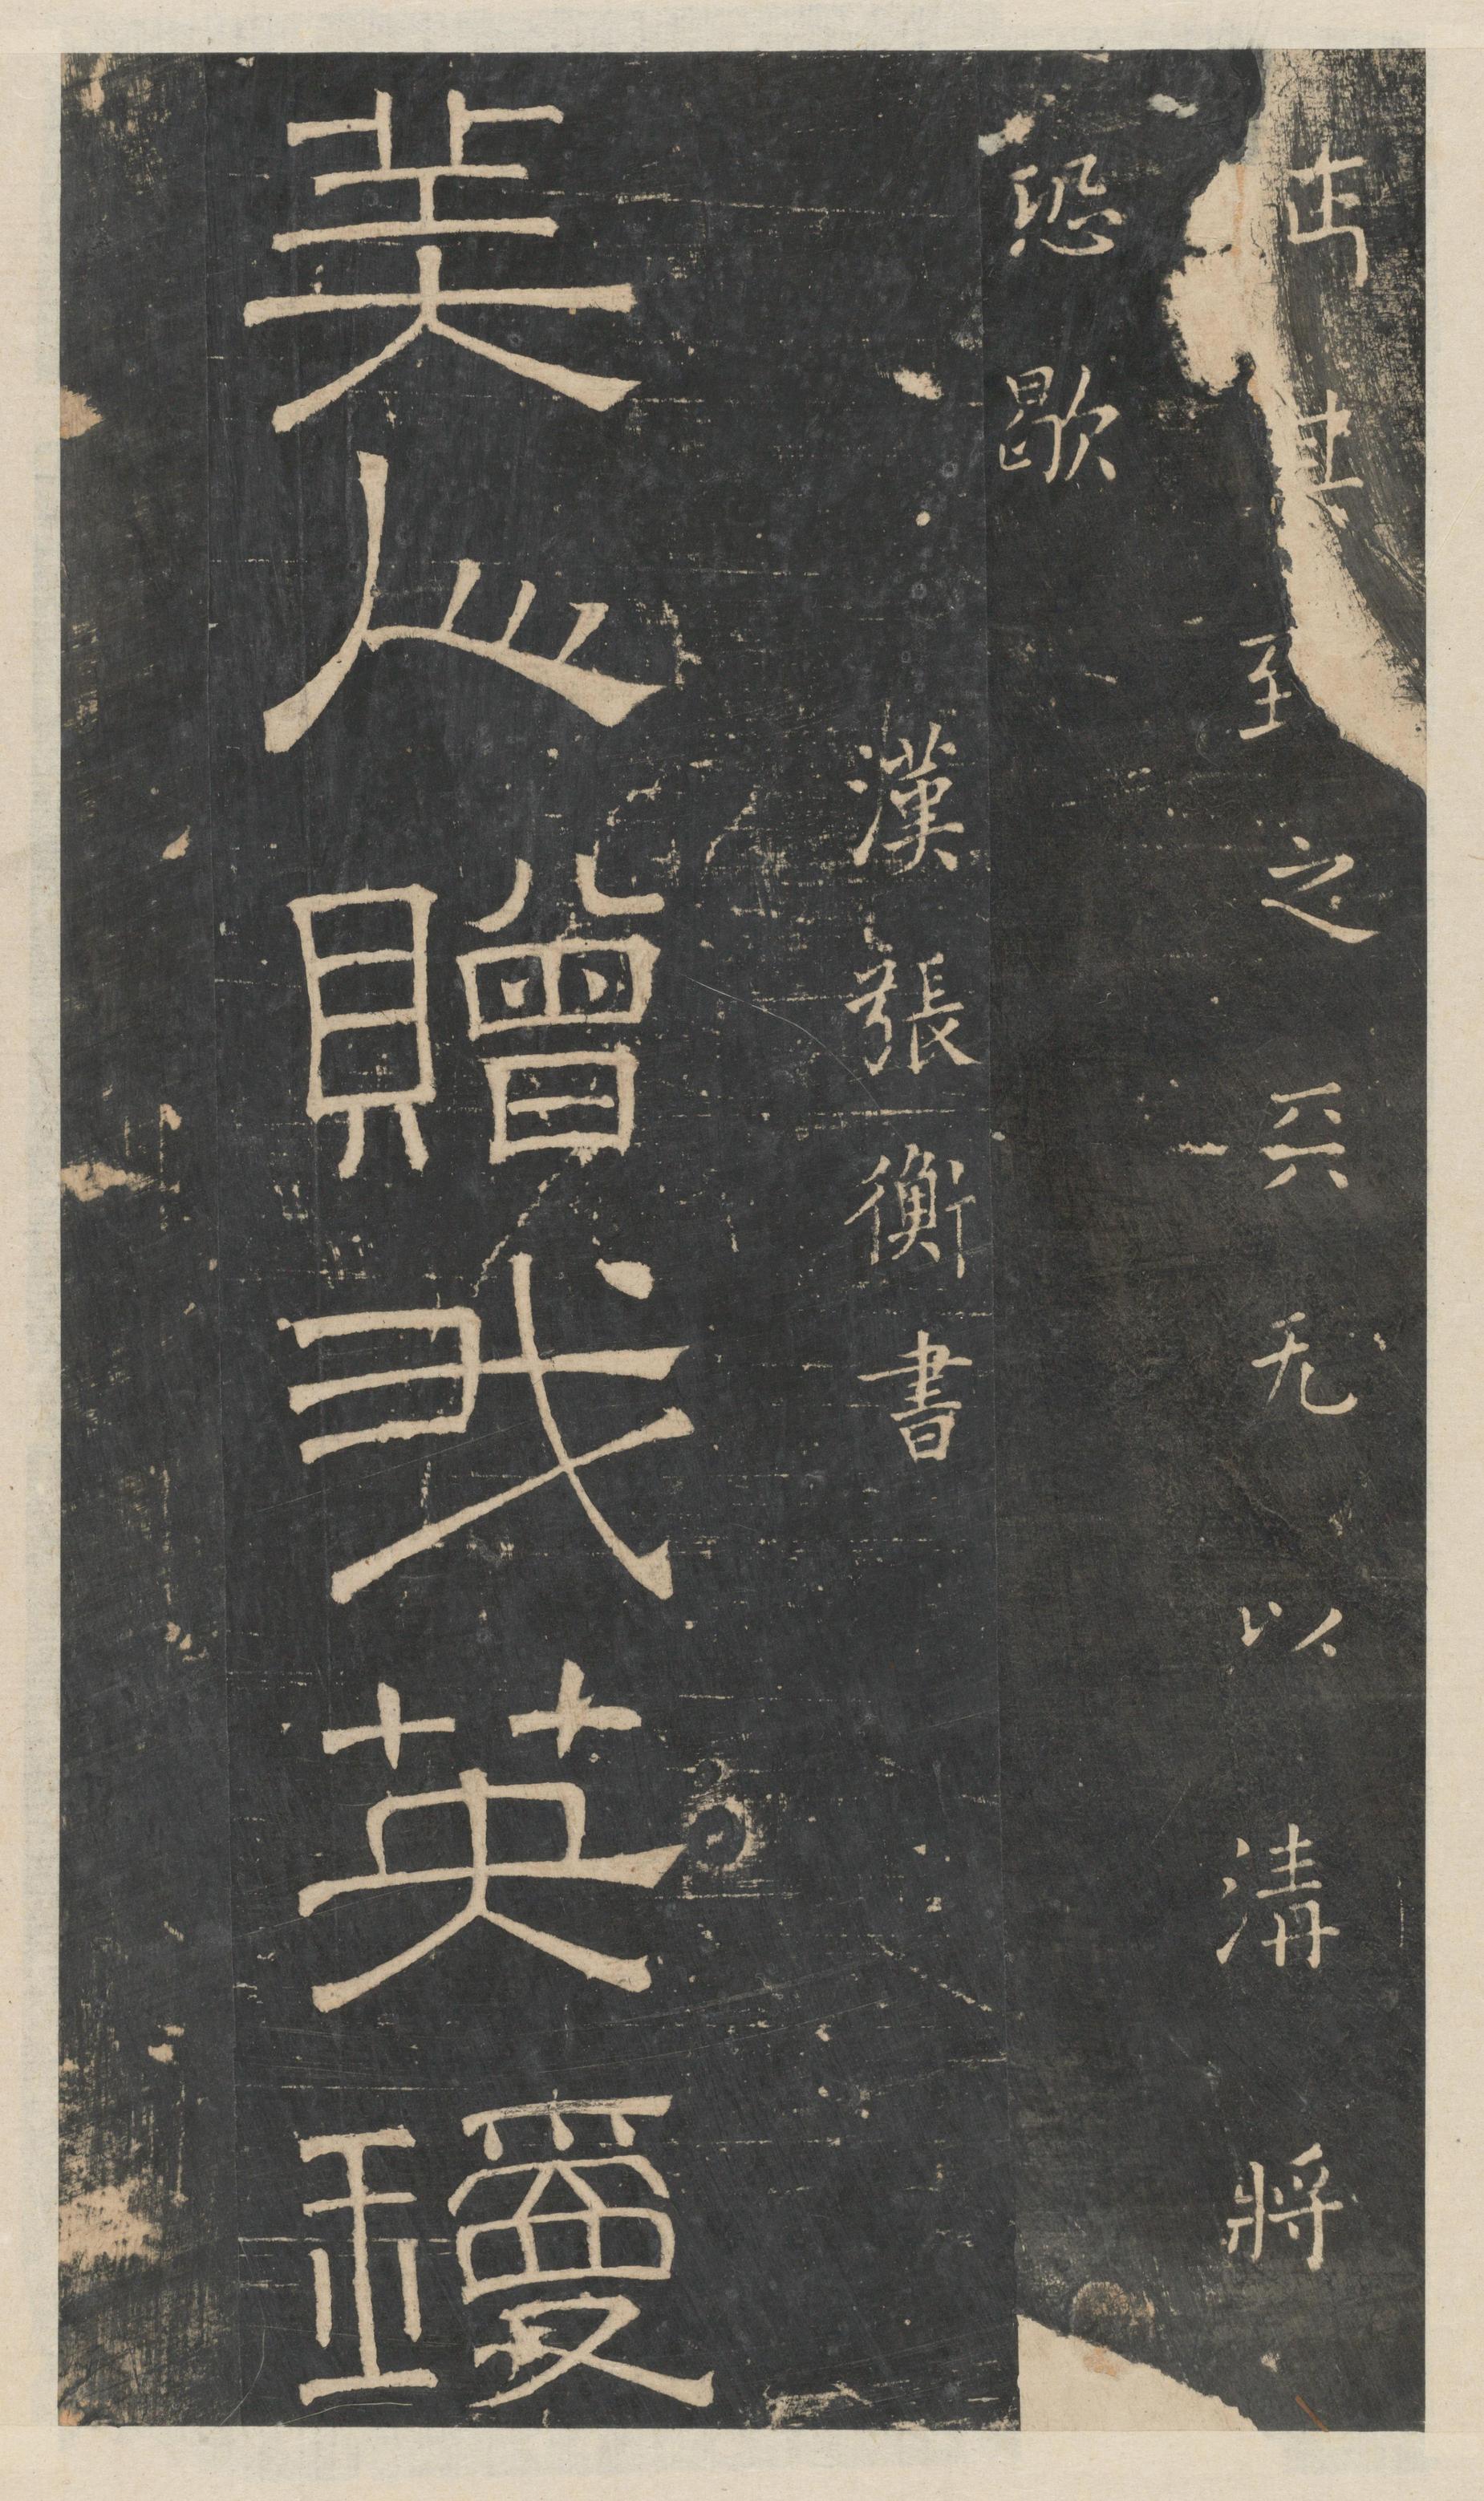 其至之兲无以清將
恐歇
漢張衡書
美人贈我英瓊